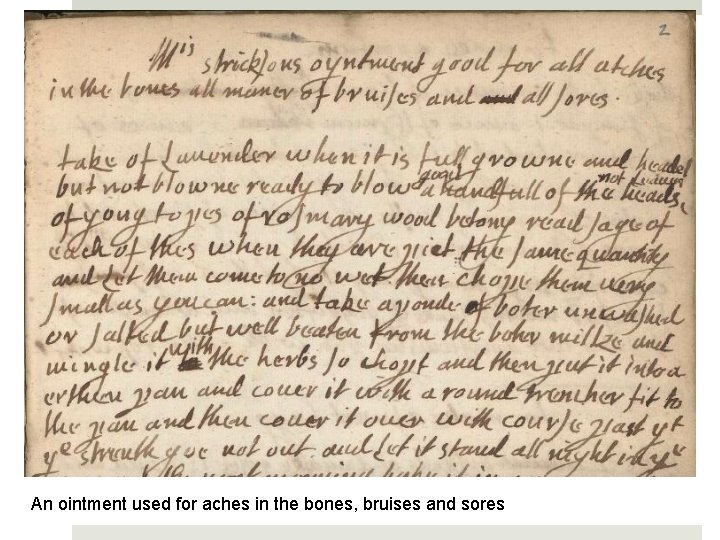 2
Mis stricksons oyntment good for all atches
in the bones all maner of bruises and and all sores.
take of Lavender when it is full growne and headed
but not blowne ready to blow a good handfull of the heads not leaves,
of yong topes of rosmary wood betony read sage of
each of thes when they are pict the same quantity
and Let them come to no wet. then chope them very
small as you can: and take a ponde of boter unwashed
or salted but well beaten from the boter millke and
mingle it with the herbs so chopt and then put it into a
erthen pan and cover it with a round trencher fit to
the pan and then cover it over with course past yt
ye strenth goe not out. and Let it stand all night in ye
An ointment used for aches in the bones, bruises and sores